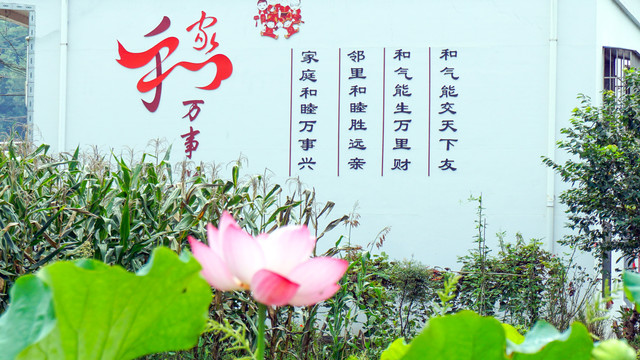 家和
万事
家庭和睦万事兴
邻里和睦胜远亲
和气能生万里财
和气能交天下友